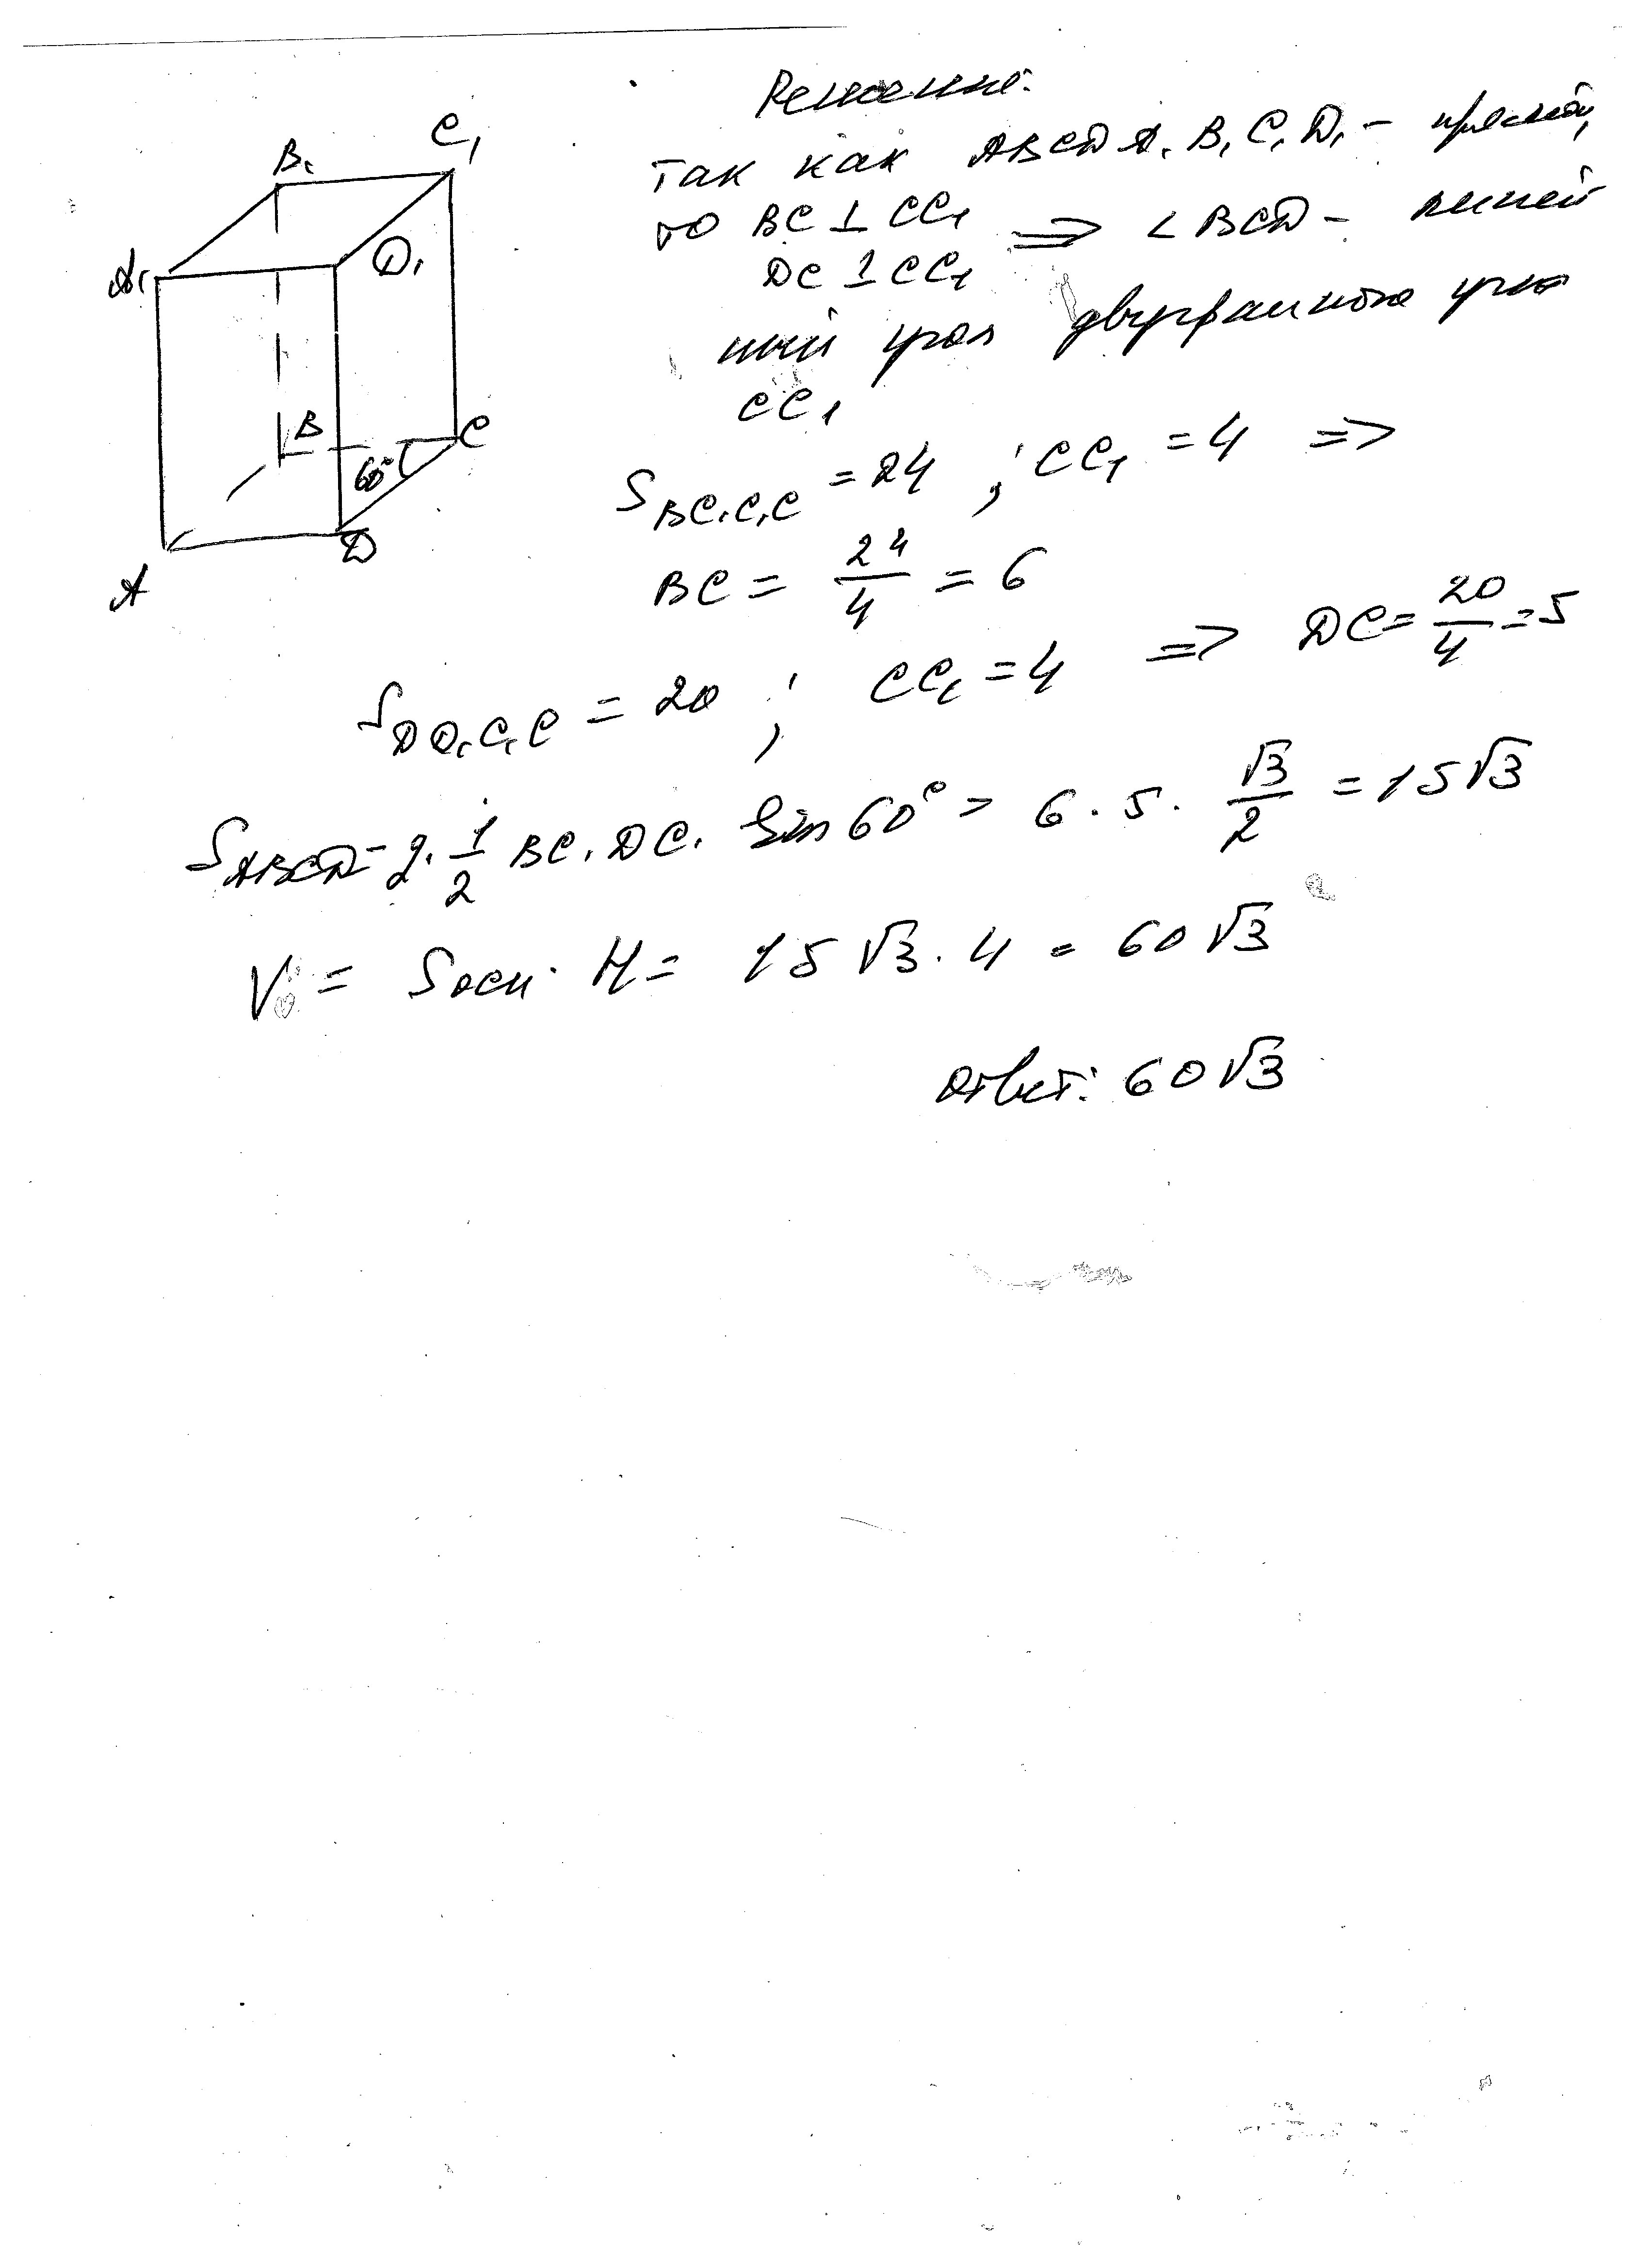 Решение:
Так как ABCDA₁B₁C₁D₁ - прямой,
то BC ⊥ CC₁
DC ⊥ CC₁ ⇒ ∠BCD - линей
ный угол двугранного угла
CC₁
S BC₁C₁C = 24 ; CC₁ = 4 ⇒
BC = 24/4 = 6
S DD₁C₁C = 20 ; CC₁ = 4 ⇒ DC = 20/4 = 5
S ABCD = 2 · 1/2 BC · DC · Sin 60° = 6 · 5 · √3/2 = 15√3
V = Sосн · H = 15√3 · 4 = 60√3
Ответ: 60√3
B₁
C₁
A₁
D₁
B
C
60°
D
A